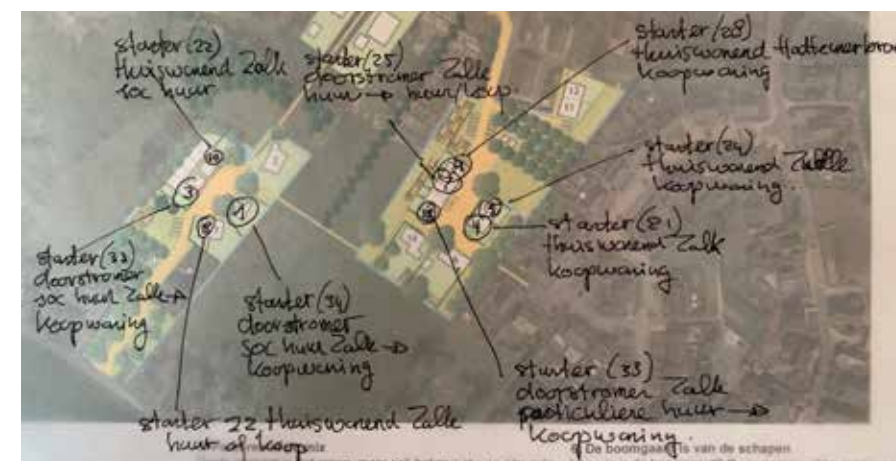 starter (22)
thuiswonend Zalk
soc huur
starter (25)
doorstromer Zalk
huur → huur/koop
starter (28)
thuiswonend Hattemerbroek
koopwoning
starter (24)
thuiswonend Zalk
koopwoning
starter (21)
thuiswonend Zalk
koopwoning
starter (33)
doorstromer
soc huur Zalk →
koopwoning
starter (34)
doorstromer
soc huur Zalk →
koopwoning
starter (33)
doorstromer Zalk
particuliere huur →
koopwoning.
starter 22 thuiswonend Zalk
huur of koop
3
7
8
4
5
12
11
De boomgaard is van de schapen